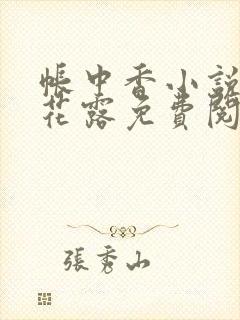 帳中香小說
花露免費閱
張秀山